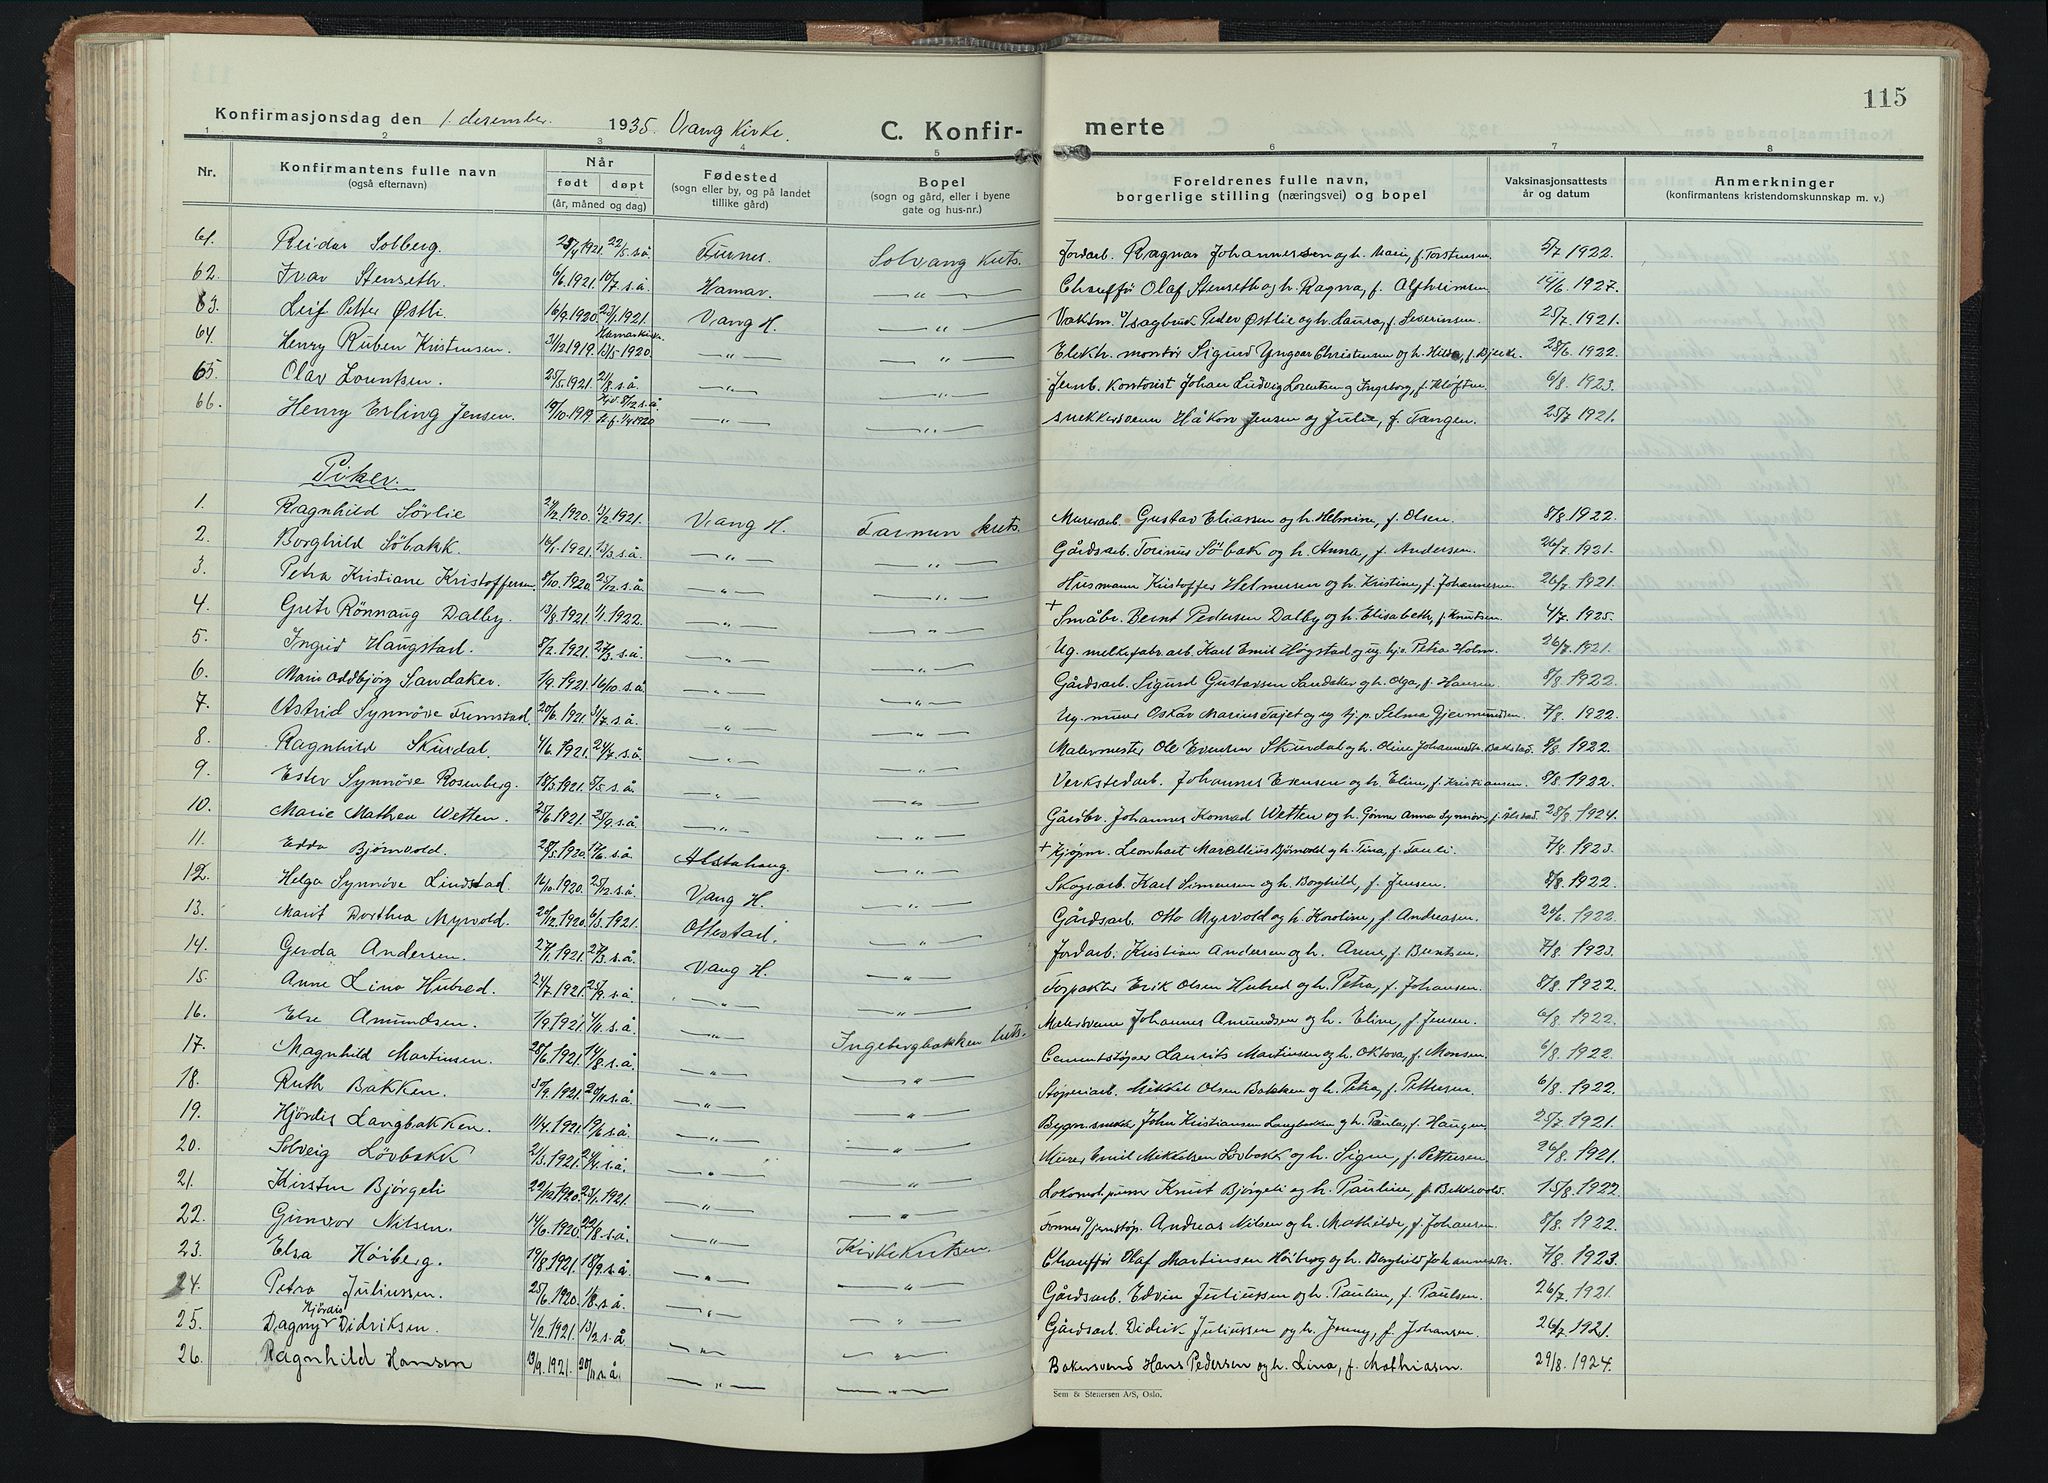 115
Konfirmasjonsdag den 1. desember. 1935. Vang Kirke. C. Konfir- merte
1 2 3 4 5 6 7 8
Nr. Konfirmantens fulle navn (også efternavn) Når født døpt (år, måned og dag) Fødested (sogn eller by, og på landet tillike gård) Bopel (sogn og gård, eller i byene gate og hus-nr.) Foreldrenes fulle navn, borgerlige stilling (næringsvei) og bopel Vaksinasjonsattests år og datum Anmerkninger (konfirmantens kristendomskunnskap m. v.)
61. Reidar Solberg. 23/4 1921. 22/5. s.å. Furnes. Solvang kuts. Jordarb. Ragnar Johannessen og h. Marie, f. Torstensen. 5/7 1922.
62. Ivar Stenseth. 6/6. 1921. 10/7. s.å. Hamar. —"— Chauffør Olaf Stenseth og h. Ragna, f. Alfheimsen 14/6. 1927.
63. Leif Petter Østli. 16/9. 1920. 23/1. 1921. Vang H. —"— Vaktm. v/sagbruk Peder Østlie og h. Laura, f. Severinsen. 25/7. 1921.
64. Henry Ruben Kristensen. 31/12 1919. Hamar kirke. 13/5-1920. —"— —"— Elektr. montør Sigurd Yngvar Christensen og h. Hilda, f. Bjerke. 28/6. 1922.
65. Olav Lorentsen. 25/5. 1921. 21/8. s.å. —"— —"— Jernb. kontorist Johan Ludvig Lorentsen og Ingeborg, f. Kløften. 6/8. 1923.
66. Henry Erling Jensen. 19/10. 1919. Hjd. 8/12 s.å. st. f. 1/4 1920 —"— —"— snekkersvenn Håkon Jensen og Julie, f. Tangen. 25/7 1921.
Piker.
1. Ragnhild Sørlie 24/12. 1920. 13/2 1921. Vang H. Farmen krets. Murerarb. Gustav Eliassen og h. Helmine, f. Olsen. 8/8 1922.
2. Borghild Söbakk. 16/1. 1921. 13/3. s.å. —"— —"— Gårdsarb. Torinus Söbak og h. Anna, f. Andersen. 26/7. 1921.
3. Petra Kristiane Kristoffersen. 8/10. 1920. 25/12. s.å. —"— —"— Husmann Kristoffer Helmersen og h. Kristine, f. Johannesen. 26/7. 1921.
4. Grete Rönnaug Dalby. 13/8. 1921. 1/1. 1922. —"— —"— + Småbr. Bernt Pedersen Dalby og h. Elisabeth, f. Knutsen. 4/7. 1925.
5. Ingrid Haugstad. 8/2. 1921. 27/3. s.å. —"— —"— Ug. melkefabr.arb. Karl Emil Høgstad og ug. hj. Petra Holm. 26/7. 1921.
6. Marie Oddbjørg Sandaker. 1/9. 1921. 16/10. s.å. —"— —"— Gårdsarb. Sigurd Gustavsen Sandaker og h. Olga, f. Hansen. 8/8. 1922.
7. Astrid Synnøve Fremstad. 20/6. 1921. 31/7. s.å. —"— —"— Ug. murer Oskar Marius Fajet og ug. hj. p. Selma Gjermundsen. 7/8. 1922.
8. Ragnhild Skurdal. 4/6. 1921. 24/7. s.å. —"— —"— Malermester Ole Evensen Skurdal og h. Oline Johannesdtr. Bakstad. 8/8. 1922.
9. Ester Synnöve Rosenberg. 18/3. 1921. 5/5. s.å. —"— —"— Verkstedarb. Johannes Evensen og h. Eline, f. Kristiansen. 8/8. 1922.
10. Marie Mathea Wetten. 25/6. 1921. 25/9. s.å. —"— —"— Gårdbr. Johannes Konrad Wetten og h. Gønner Anna Synnøve, f. Ålstad. 28/8. 1924.
11. Edda Bjørnvold. 28/5. 1920. 17/6. s.å. Alstahaug. —"— + Kjøpm. Leonhart Marellius Bjørnvold og h. Tina, f. Fauli. 7/8. 1923.
12. Helga Synnöve Lindstad. 16/10. 1920. 25/12. s.å. Vang H. —"— Skogsarb. Karl Simensen og h. Borghild, f. Jensen. 8/8. 1922.
13. Marit Dorthea Myrvold. 20/12. 1920. 6/3. 1921. Ottestad. —"— Gårdsarb. Otto Myrvold og h. Karoline, f. Andreasen. 20/6. 1922.
14. Gerda Andersen. 27/1. 1921. 27/3. s.å. Vang H. —"— Jordarb. Kristian Andersen og h. Anne, f. Berntsen. 7/8. 1923
15. Anne Lina Hubred. 24/7. 1921. 25/9. s.å. —"— —"— Forpakter Erik Olsen Hubred og h. Petra, f. Johansen. 8/8. 1922.
16. Else Amundsen. 1/9. 1921. 4/11. s.å. —"— Ingebergbakken kuts. Malersvenn Johannes Amundsen og h. Eline, f. Jensen. 6/8. 1922.
17. Magnhild Martinsen. 28/6. 1921. 14/8. s.å. —"— —"— Cementstøper Laurits Martinsen og h. Oktova, f. Monsen. 6/8. 1922.
18. Ruth Bakken. 30/9. 1921. 20/11. s.å. —"— —"— Støperiarb. Mikkel Olsen Bakken og h. Petra, f. Pettersen. 6/8. 1922.
19. Hjördis Langbakken. 11/4. 1921. 19/6. s.å. —"— —"— Bygn.snekk. John Kristiansen Langbakken og h. Paula, f. Haugen. 25/7. 1921.
20. Solveig Lövbakk 2/3. 1921. 24/4. s.å. —"— —"— Murer Emil Mikkelsen Lövbakk og h. Signe, f. Pettersen. 26/8. 1921.
21. Kirsten Bjørgeli 22/12 1920. 23/1. 1921. —"— —"— Lokomot.pusser Knut Bjørgeli og h. Pauline, f. Bekkevold. 15/8. 1922
22. Gunvor Nilsen. 14/6. 1920. 22/8. s.å. —"— Kirkekretsen. Formes v/jernstøp. Andreas Nilsen og h. Mathilde, f. Johansen. 8/8. 1922.
23. Elsa Høiberg. 19/8. 1921. 18/9. s.å. —"— —"— Chauffør Olaf Martinsen Høiberg og h. Borghild Johannesdtr. 7/8. 1923.
24. Petra Juliussen. 25/6. 1920. 1/8. s.å. —"— —"— Gårdsarb. Edvin Juliussen og h. Pauline, f. Paulsen. 26/7. 1921.
25. Dagny Hjördis Didriksen. 4/2. 1921. 13/2 s.å. —"— —"— Gårdsarb. Didrik Juliussen og h. Jenny, f. Johansen. 26/7. 1921.
26. Ragnhild Hansen 13/9. 1921. 20/11. s.å. —"— —"— Bakersvend Hans Pedersen og h. Lina, f. Mathiasen. 29/8. 1924.
Sem & Stenersen A/S, Oslo.